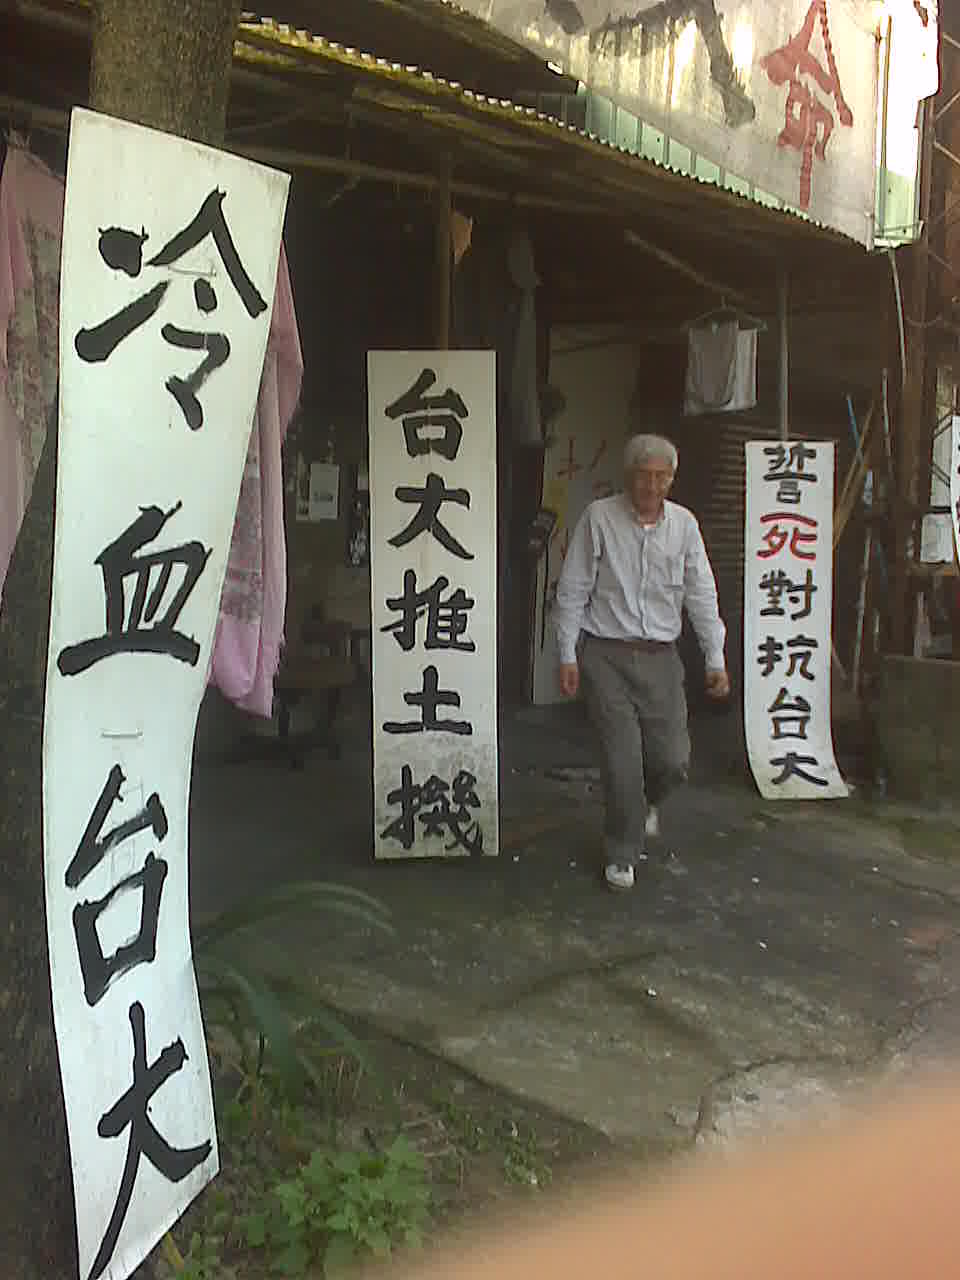 冷血台大
台大推土機
誓死對抗台大
命